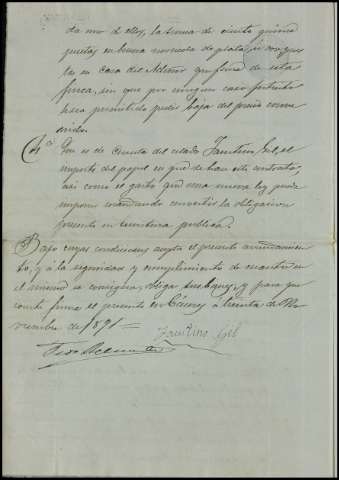 da uno de ellos, la suma de ciento quince
pesetas en buena moneda de plata, ú oro pues
tas en casa del Señor que firma de esta
finca, sin que por ningun caso fortuito
sea permitido pedir baja del precio conve
nido.
Que es de cuenta del citado Faustino Gil, el
importe del papel en que deban este contrato,
así como el gasto que una nueva ley pueda
imponer ó mandando convertir la obligacion
presente en escritura pública.
Bajo cuyas condiciones acepta el presente arrendamien
to, y á la seguridad y cumplimiento de cuanto en
el mismo se consigna, obliga sus bienes, y para que
conste firma el presente en Cáceres á treinta de No
viembre de 1891 =
Faustino Gil